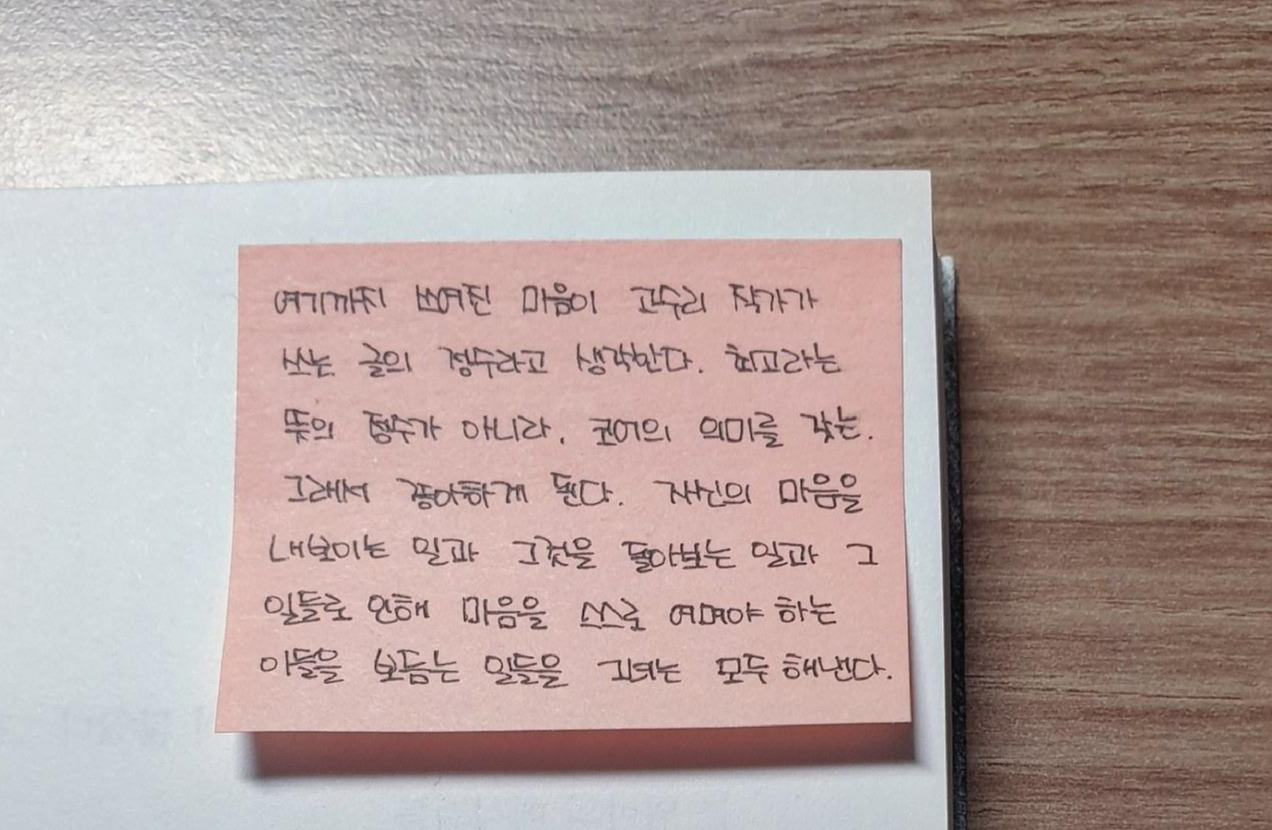 여기까지 쓰여진 마음이 고수리 작가가
쓰는 글의 정수라고 생각한다. 최고라는
뜻의 정수가 아니라, 코어의 의미를 갖는.
그래서 좋아하게 된다. 자신의 마음을
내보이는 일과 그것을 돌아보는 일과 그
일들로 인해 마음을 스스로 여며야 하는
이들을 보듬는 일들을 그녀는 모두 해낸다.